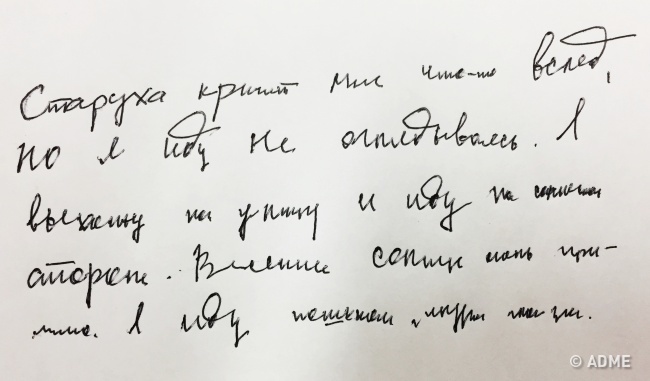 Старуха кричит мне что-то вслед,
но я иду не оглядываясь. Я
выхожу на улицу и иду по солнечной
стороне. Весеннее солнце очень при-
ятно. Я иду пешком, щурю глаза.
© ADME